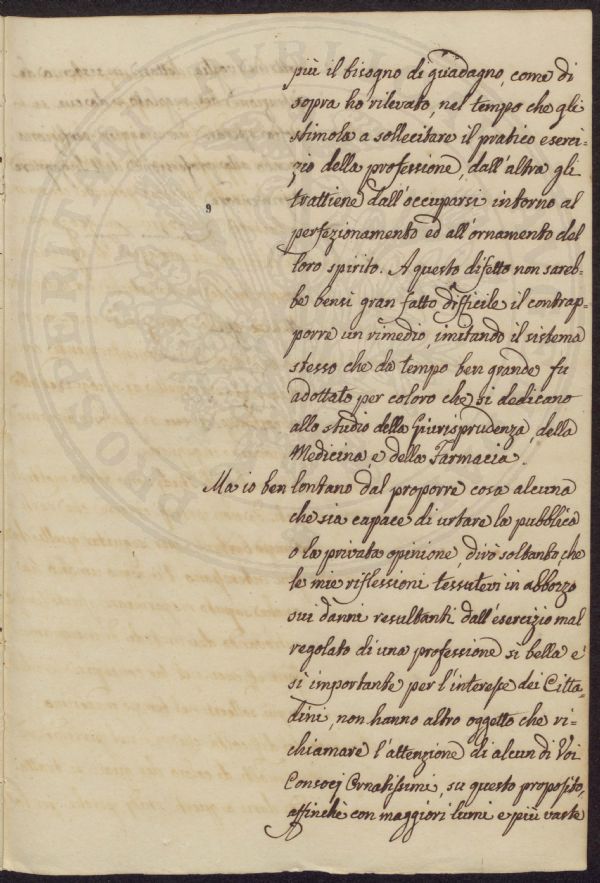 più il bisogno di guadagno, come di
sopra ho rilevato, nel tempo che gli
stimola a sollecitare il pratico eserci=
zio della professione, dall'altra gli
trattiene dall'occuparsi intorno al
9
perfezionamento ed all'ornamento del
loro spirito. A questo difetto non sareb=
be bensì gran fatto difficile il contrap=
porre un rimedio, imitando il sistema
stesso che da tempo ben grande fu
adottato per coloro che si dedicano
allo studio della Giurisprudenza, della
Medicina, e della Farmacia.
Ma io ben lontano dal proporre cosa alcuna
che sia capace di urtare la pubblica
o la privata opinione, dirò soltanto che
le mie riflessioni tessutevi in abbozzo
sui danni resultanti dall'esercizio mal
regolato di una professione sì bella e
sì importante per l'interesse dei Citta=
dini, non hanno altro oggetto che ri=
chiamare l'attenzione di alcun di Voi
Consocj Ornatissimi, su questo proposito,
affinchè con maggiori lumi e più vaste